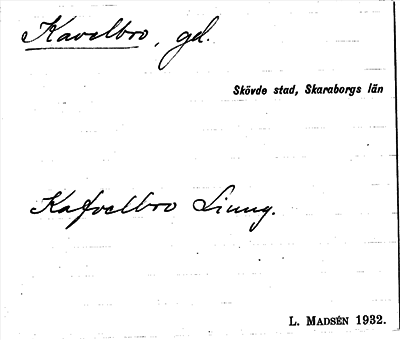 Kavelbro, gd.
Skövde stad, Skaraborgs län
Kafvelbro Liung.
L. MADSÉN 1932.